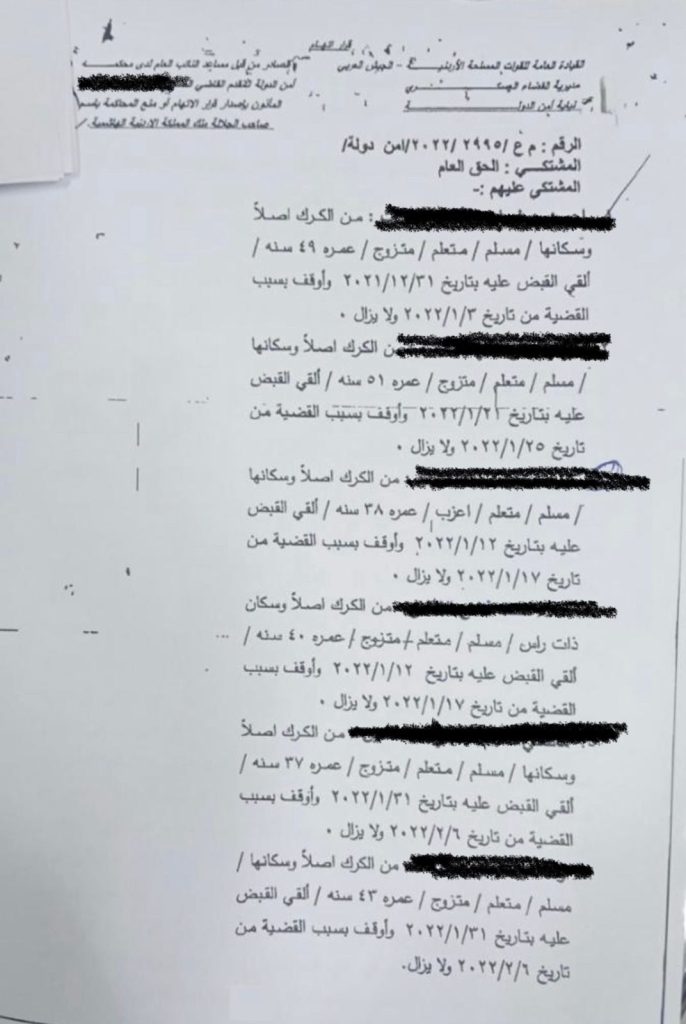 قرار اتهام
القيادة العامة للقوات المسلحة الأردنية – الجيش العربي
مديرية القضاء العسكري
نيابة أمن الدولة
الصادر من قبل مساعد النائب العام لدى محكمة
أمن الدولة المقدم القاضي
المأذون بإصدار قرار الاتهام أو منع المحاكمة باسم
صاحب الجلالة ملك المملكة الاردنية الهاشمية /
الرقم : م ع /٢٩٩٥ /٢٠٢٢/امن دولة/
المشتكي : الحق العام
المشتكى عليهم :-
: من الكرك اصلاً
وسكانها / مسلم / متعلم / متزوج / عمره ٤٩ سنه /
ألقي القبض عليه بتاريخ ٢٠٢١/١٢/٣١ وأوقف بسبب
القضية من تاريخ ٢٠٢٢/١/٣ ولا يزال .
من الكرك اصلاً وسكانها
/ مسلم / متعلم / متزوج / عمره ٥١ سنه / ألقي القبض
عليه بتاريخ ٢٠٢٢/١/٢١ وأوقف بسبب القضية من
تاريخ ٢٠٢٢/١/٢٥ ولا يزال .
من الكرك اصلاً وسكانها
/ مسلم / متعلم / اعزب / عمره ٣٨ سنه / ألقي القبض
عليه بتاريخ ٢٠٢٢/١/١٢ وأوقف بسبب القضية من
تاريخ ٢٠٢٢/١/١٧ ولا يزال .
من الكرك اصلاً وسكان
ذات راس / مسلم / متعلم / متزوج / عمره ٤٠ سنه /
ألقي القبض عليه بتاريخ ٢٠٢٢/١/١٢ وأوقف بسبب
القضية من تاريخ ٢٠٢٢/١/١٧ ولا يزال .
من الكرك اصلاً
وسكانها / مسلم / متعلم / متزوج / عمره ٣٧ سنه /
ألقي القبض عليه بتاريخ ٢٠٢٢/١/٣١ وأوقف بسبب
القضية من تاريخ ٢٠٢٢/٢/٦ ولا يزال .
من الكرك اصلاً وسكانها /
مسلم / متعلم / متزوج / عمره ٤٣ سنه / ألقي القبض
عليه بتاريخ ٢٠٢٢/١/٣١ وأوقف بسبب القضية من
تاريخ ٢٠٢٢/٢/٦ ولا يزال.